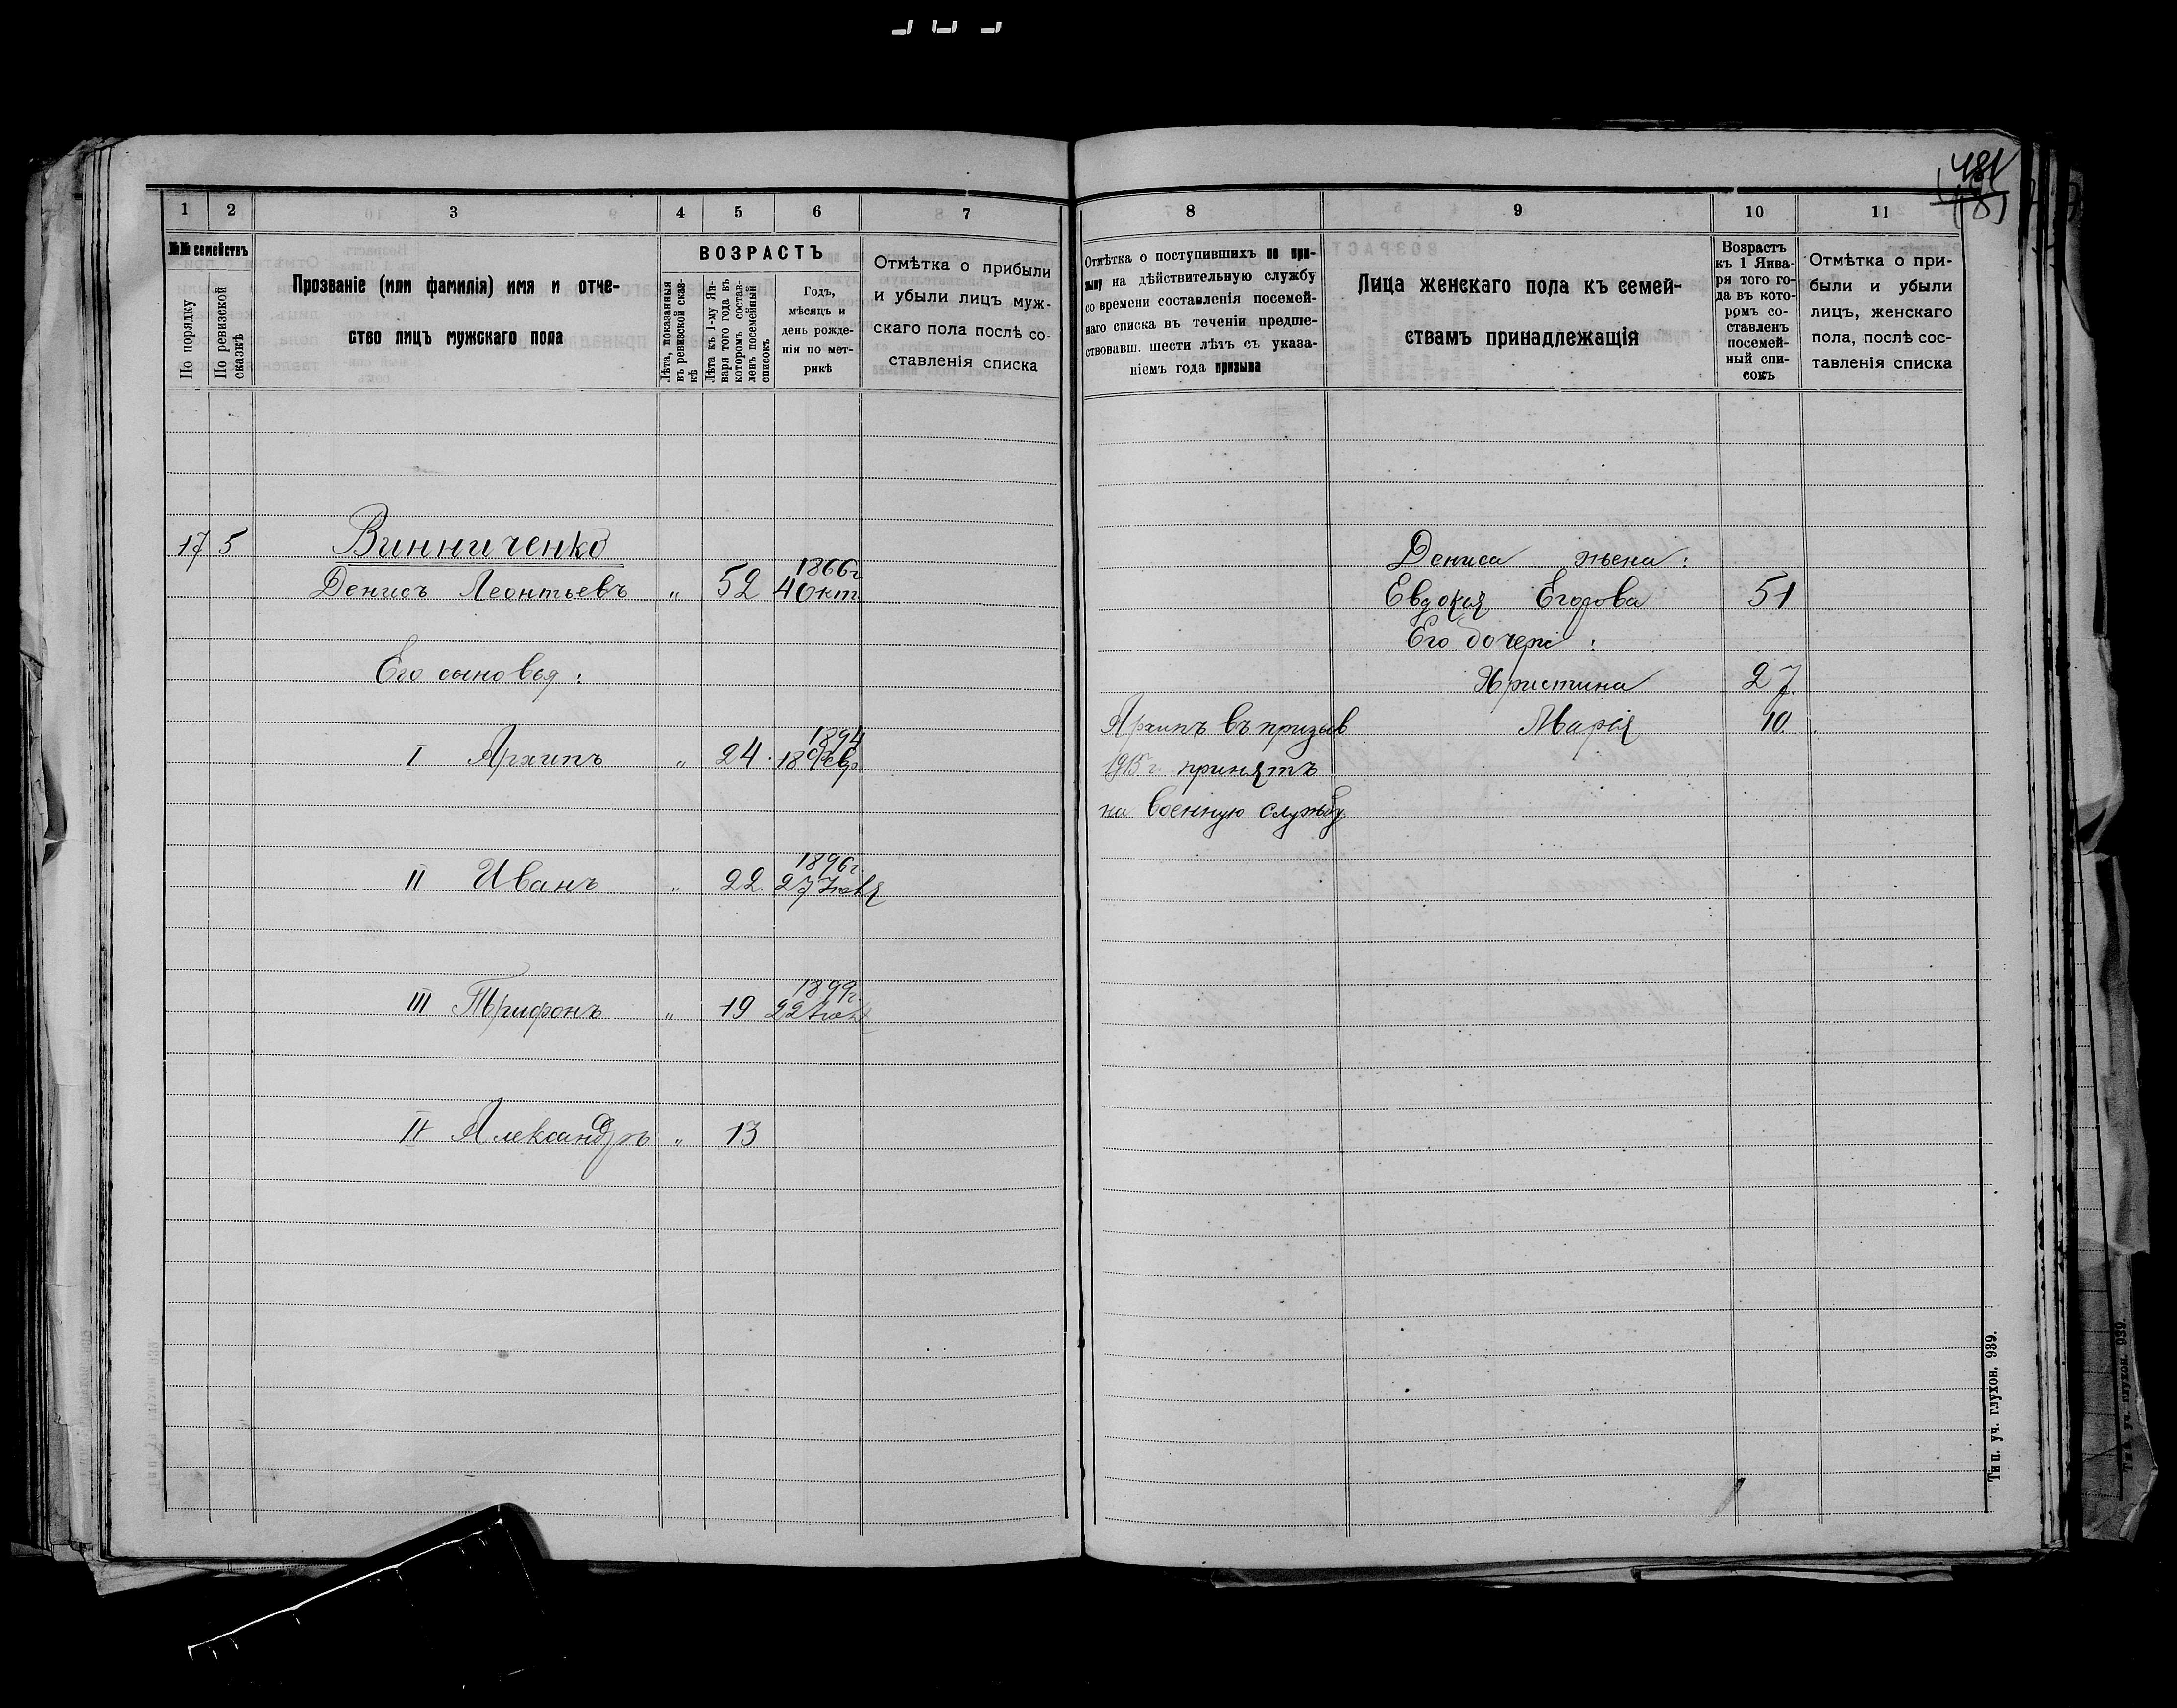 481
1 2 3 4 5 6 7
№№ семействъ
По порядку
По ревизской сказкѣ
Прозваніе (или фамилія) имя и отче-
ство лицъ мужскаго пола
ВОЗРАСТЪ
Лѣта, показанныя
въ ревизской сказ-
кѣ
Лѣта къ 1-му Ян-
варя того года въ
которомъ состав-
ленъ посемейный
списокъ
Годъ,
мѣсяцъ и
день рожде-
нія по мет-
рикѣ
Отмѣтка о прибыли
и убыли лицъ муж-
скаго пола послѣ со-
ставленія списка
17 5 Винниченко
1866г
Денисъ Леонтьевъ „ 52 4 Окт.
Его сыновья:
1894
I Архипъ „ 24. 18 Февр.
1896г.
II Иванъ „ 22. 27
1899г.
III Трифонъ „ 19 22
IV Александръ „ 13
8 9 10 11
Отмѣтка о поступившихъ по при-
зыву на дѣйствительную службу
со времени составленія посемей-
наго списка въ теченіи предше-
ствовавш. шести лѣтъ съ указа-
ніемъ года призыва
Лица женскаго пола къ семей-
ствамъ принадлежащія
Возрастъ
къ 1 Янва-
ря того го-
да въ кото-
ромъ со-
ставленъ
посемей-
ный спи-
сокъ
Отмѣтка о при-
были и убыли
лицъ, женскаго
пола, послѣ сос-
тавленія списка
Дениса жена:
Евдокія Егорова 51
Его дочери:
Христина 27.
Архипъ въ призыв Марія 10.
1915г. принятъ
на военную службу
Тип. уч. глухон. 989.
Тип. уч. глухон. 989.